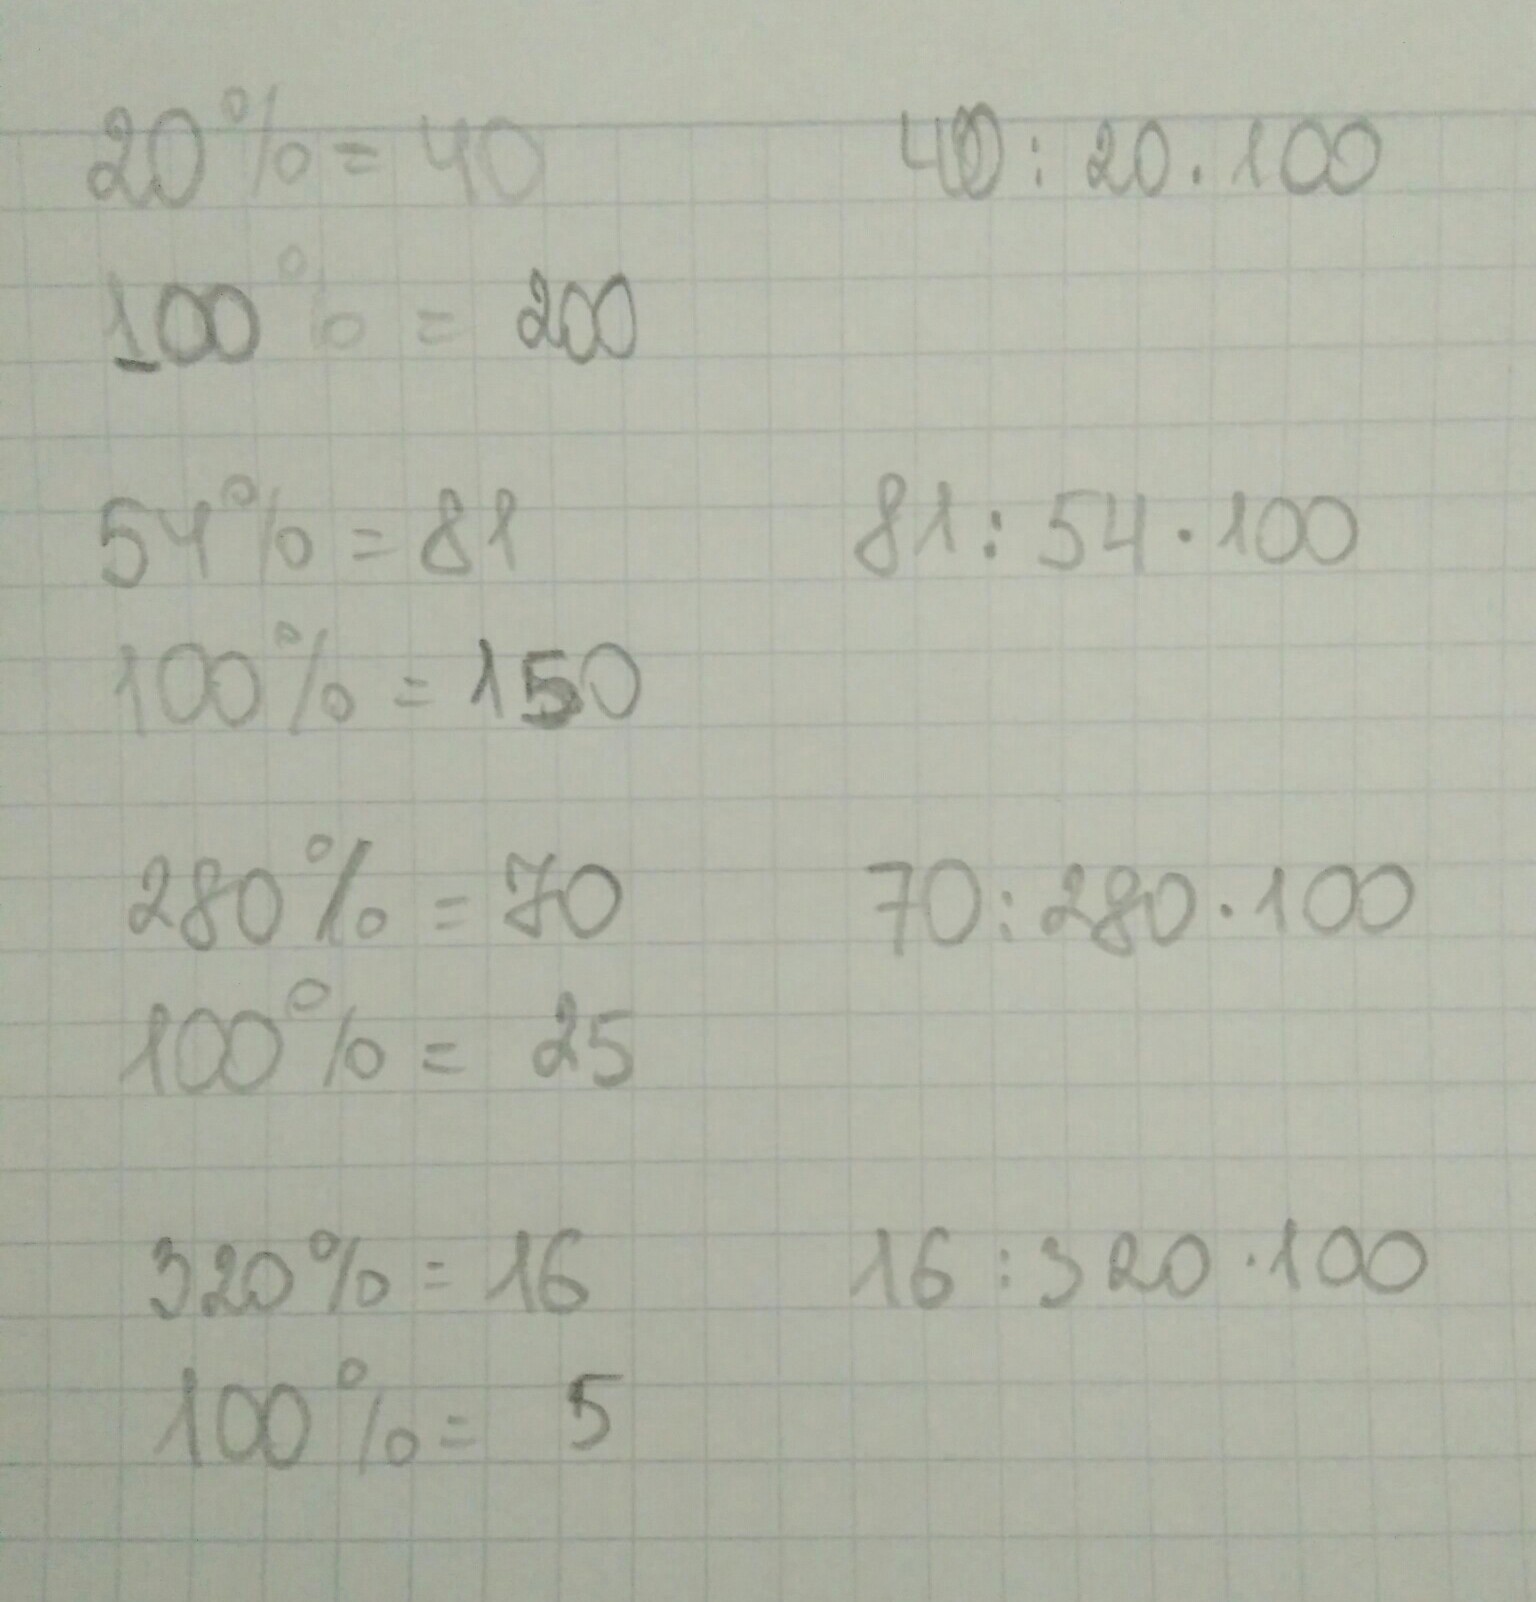 20% = 40 40 : 20 . 100
100% = 200
54% = 81 81 : 54 . 100
100% = 150
280% = 70 70 : 280 . 100
100% = 25
320% = 16 16 : 320 . 100
100% = 5